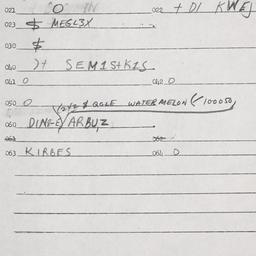 021 O IN 022 + DI KWEJ
023 $ MEGL3X
030 $
040 )+ SEM1S+K1S
041 O 042 O
050 O
$ QGLE WATERMELON (-100050)
060 DING-E/ARBUZ
062
063 KIRBES 064 O